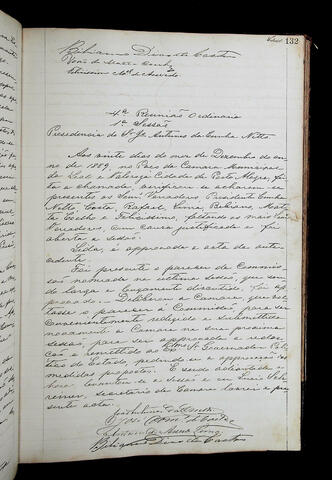 132
Dias de Castro
4ª Reunião Ordinaria
1ª Sessão
Presidencia do Sr. Je. Antonio da Cunha Netto
Aos vinte dias do mez de Dezembro de an-
no de 1889, no Paço da Camara Municipal
da Leal e Valoroza Cidade de Porto Alegre, fei-
ta a chamada, verificou-se acharem-se
presentes os Senrs. Vereadores Presidente Cunha
Netto, Rafael, Lima, Beliano, Baptis-
ta Coelho e Felicissimo, faltando os mais Senrs.
Vereadores, com causa justificada e foi
aberta a sessão.
Lida, é approvada a acta da ante-
cedente.
Foi presente o parecer da Commis-
são nomeada na ultima sessão, que sen-
do larga e longamente discutido, foi ap-
provado. Deliberou a Camara, que vol-
tasse o parecer á Commissão, para ser
convenientemente redigido e submettido
novamente á Camara na sua proxima
sessão, para ser approvada a redac-
ção e remettido ao Exmo. Sr. Governador
do Estado, pedindo-se a approvação das
medidas propostas. E sendo adiantada a
hora, levantou-se a sessão e eu
secretario da Camara lavrei a pre-
sente acta.
Dias de Castro